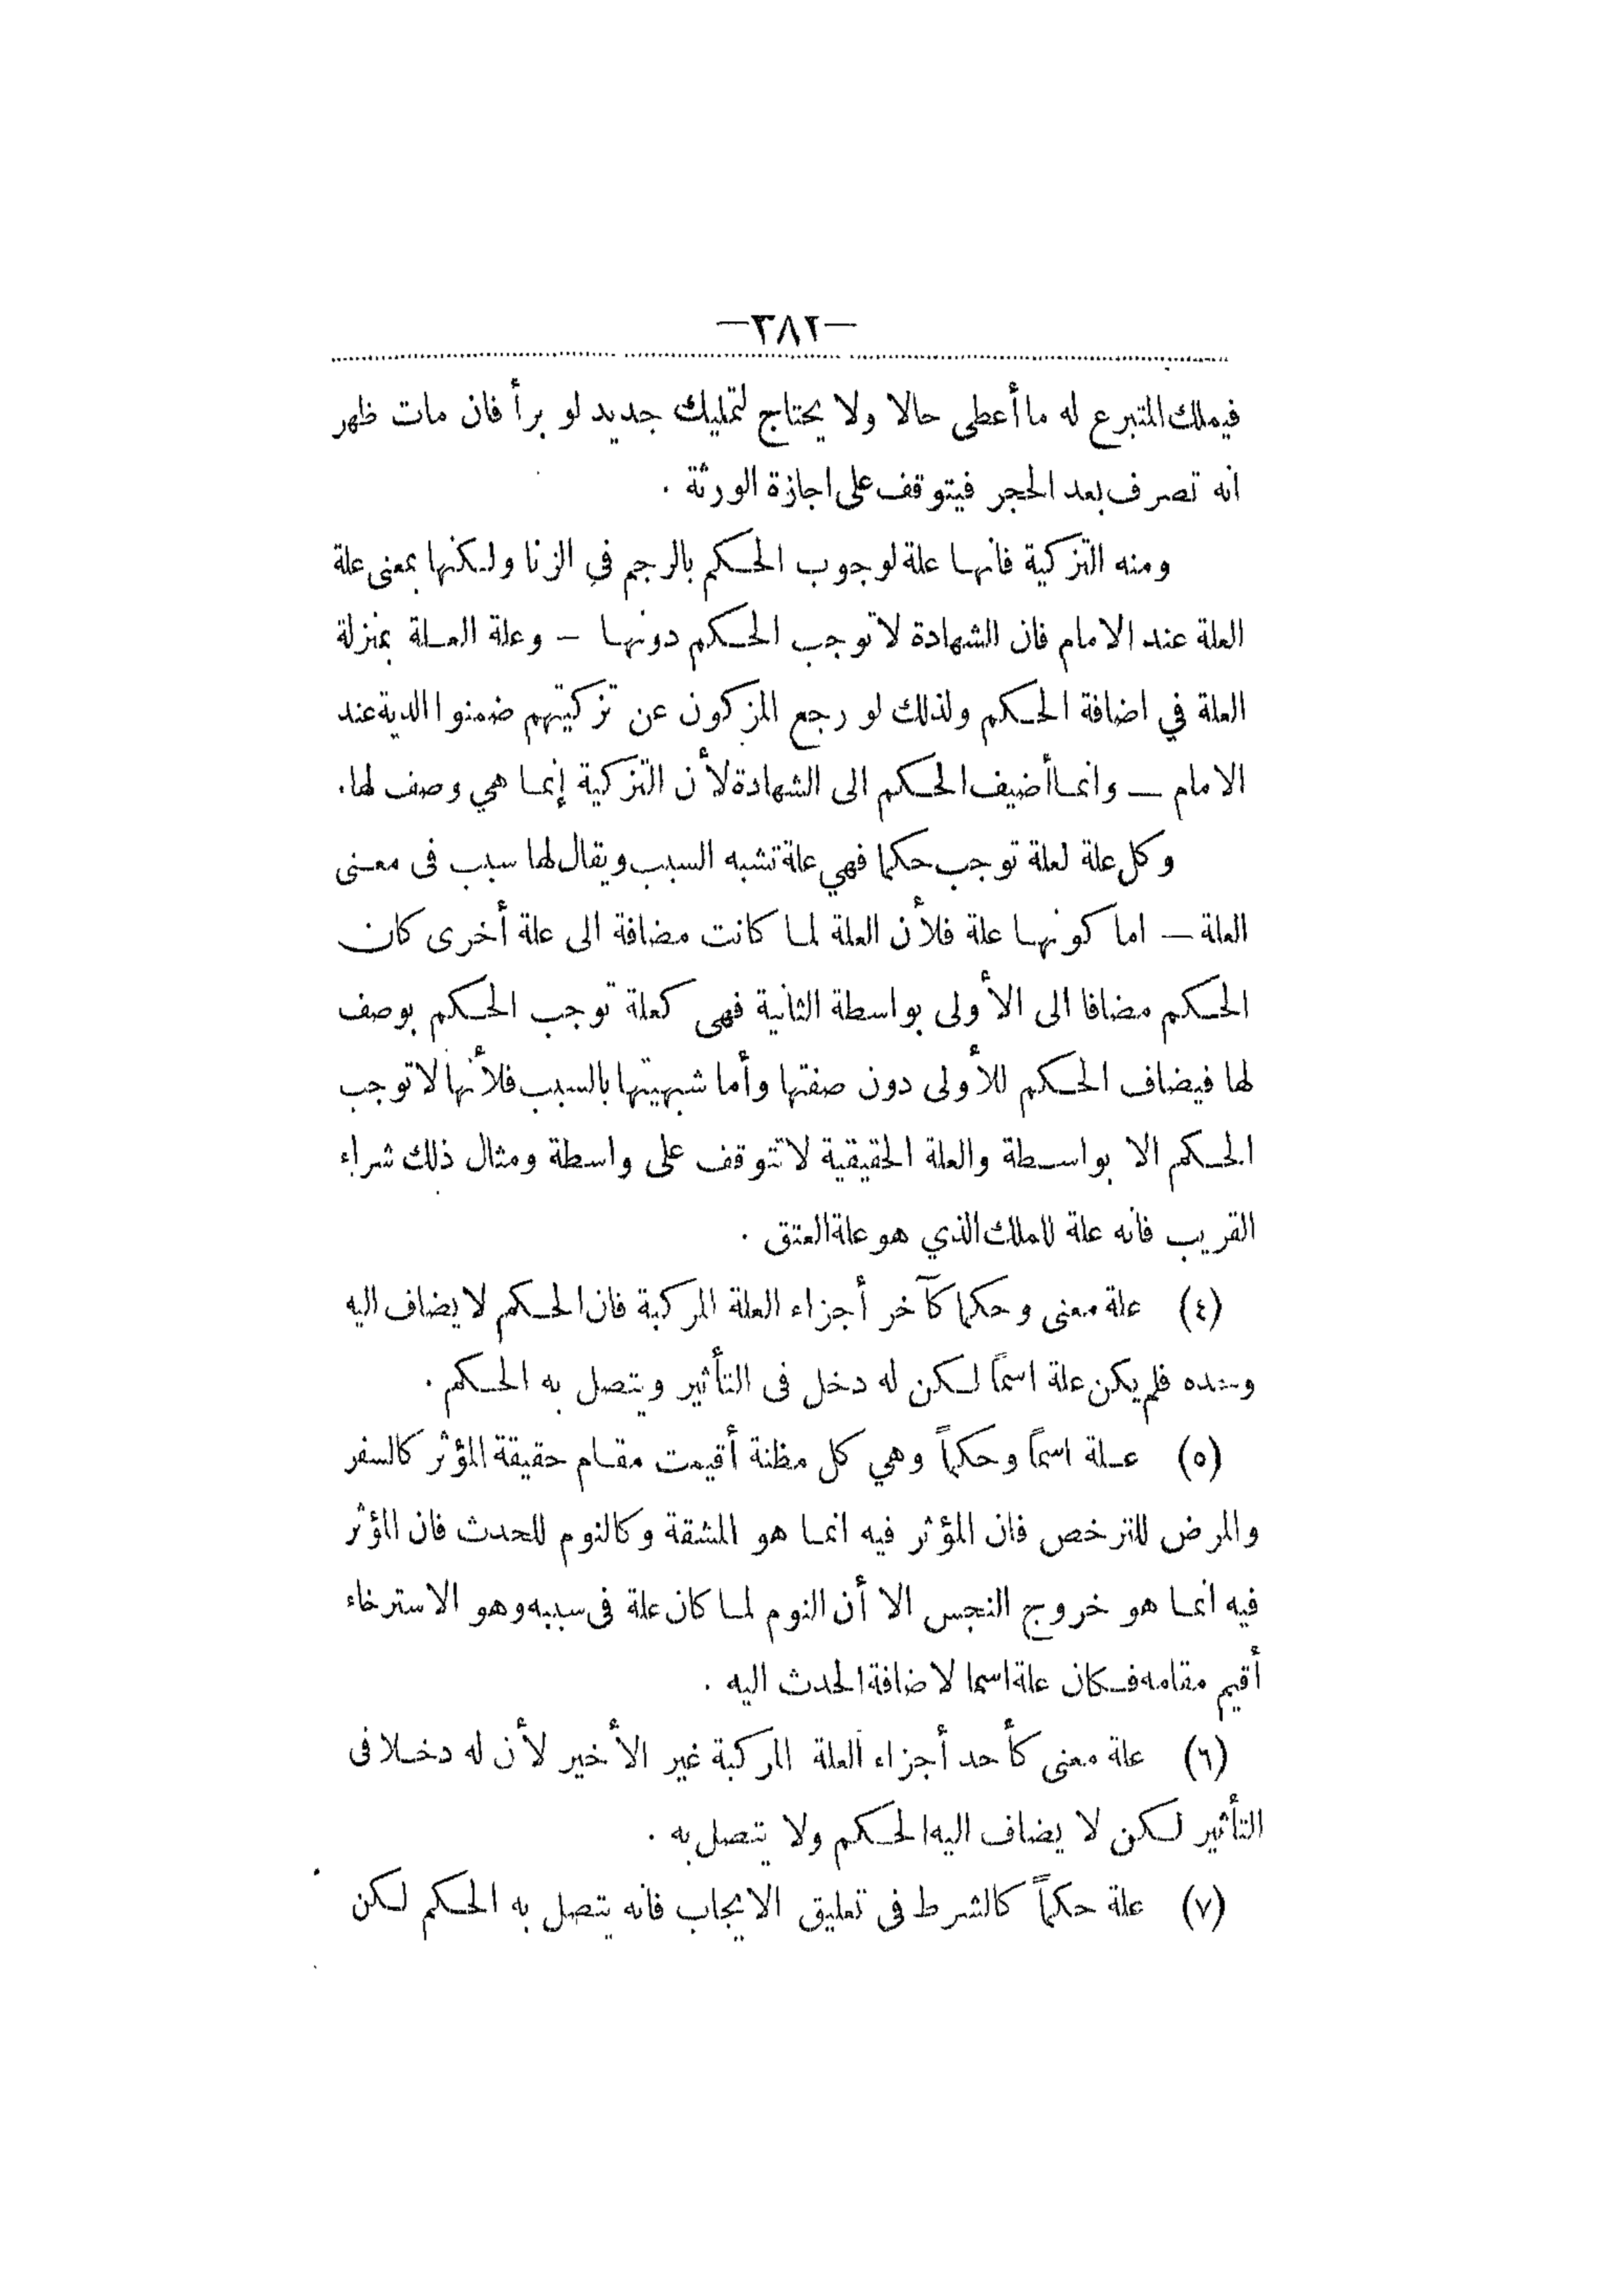 —٣٨٢—
فيملك المتبرع له ما أعطى حالا ولا يحتاج لتمليك جديد لو برأ فان مات ظهر
انه تصرف بعد الحجر فيتوقف على اجازة الورثة .
ومنه التزكية فانها علة لوجوب الحكم بالرجم في الزنا ولكنها بمعنى علة
العلة عند الامام فان الشهادة لا توجب الحكم دونها — وعلة العلة بمنزلة
العلة في اضافة الحكم ولذلك لو رجع المزكون عن تزكيتهم ضمنوا الدية عند
الامام — وانما أضيف الحكم الى الشهادة لأن التزكية إنما هي وصف لها .
وكل علة لعلة توجب حكما فهي علة تشبه السبب ويقال لها سبب فى معنى
العلة — اما كونها علة فلأن العلة لما كانت مضافة الى علة أخرى كان
الحكم مضافا الى الأولى بواسطة الثانية فهى كعلة توجب الحكم بوصف
لها فيضاف الحكم للأولى دون صفتها وأما شبهيتها بالسبب فلأنها لا توجب
الحكم الا بواسطة والعلة الحقيقية لا تتوقف على واسطة ومثال ذلك شراء
القريب فانه علة للملك الذي هو علة العتق .
(٤) علة معنى وحكما كآخر أجزاء العلة المركبة فان الحكم لا يضاف اليه
وحده فلم يكن علة اسماً لكن له دخل فى التأثير ويتصل به الحكم .
(٥) علة اسماً وحكماً وهي كل مظنة أقيمت مقام حقيقة المؤثر كالسفر
والمرض للترخص فان المؤثر فيه انما هو المشقة وكالنوم للحدث فان المؤثر
فيه انما هو خروج النجس الا أن النوم لما كان علة فى سببه وهو الاسترخاء
أقيم مقامه فكان علة اسما لاضافة الحدث اليه .
(٦) علة معنى كأحد أجزاء العلة المركبة غير الأخير لأن له دخلا فى
التأثير لكن لا يضاف اليه الحكم ولا يتصل به .
(٧) علة حكماً كالشرط فى تعليق الايجاب فانه يتصل به الحكم لكن